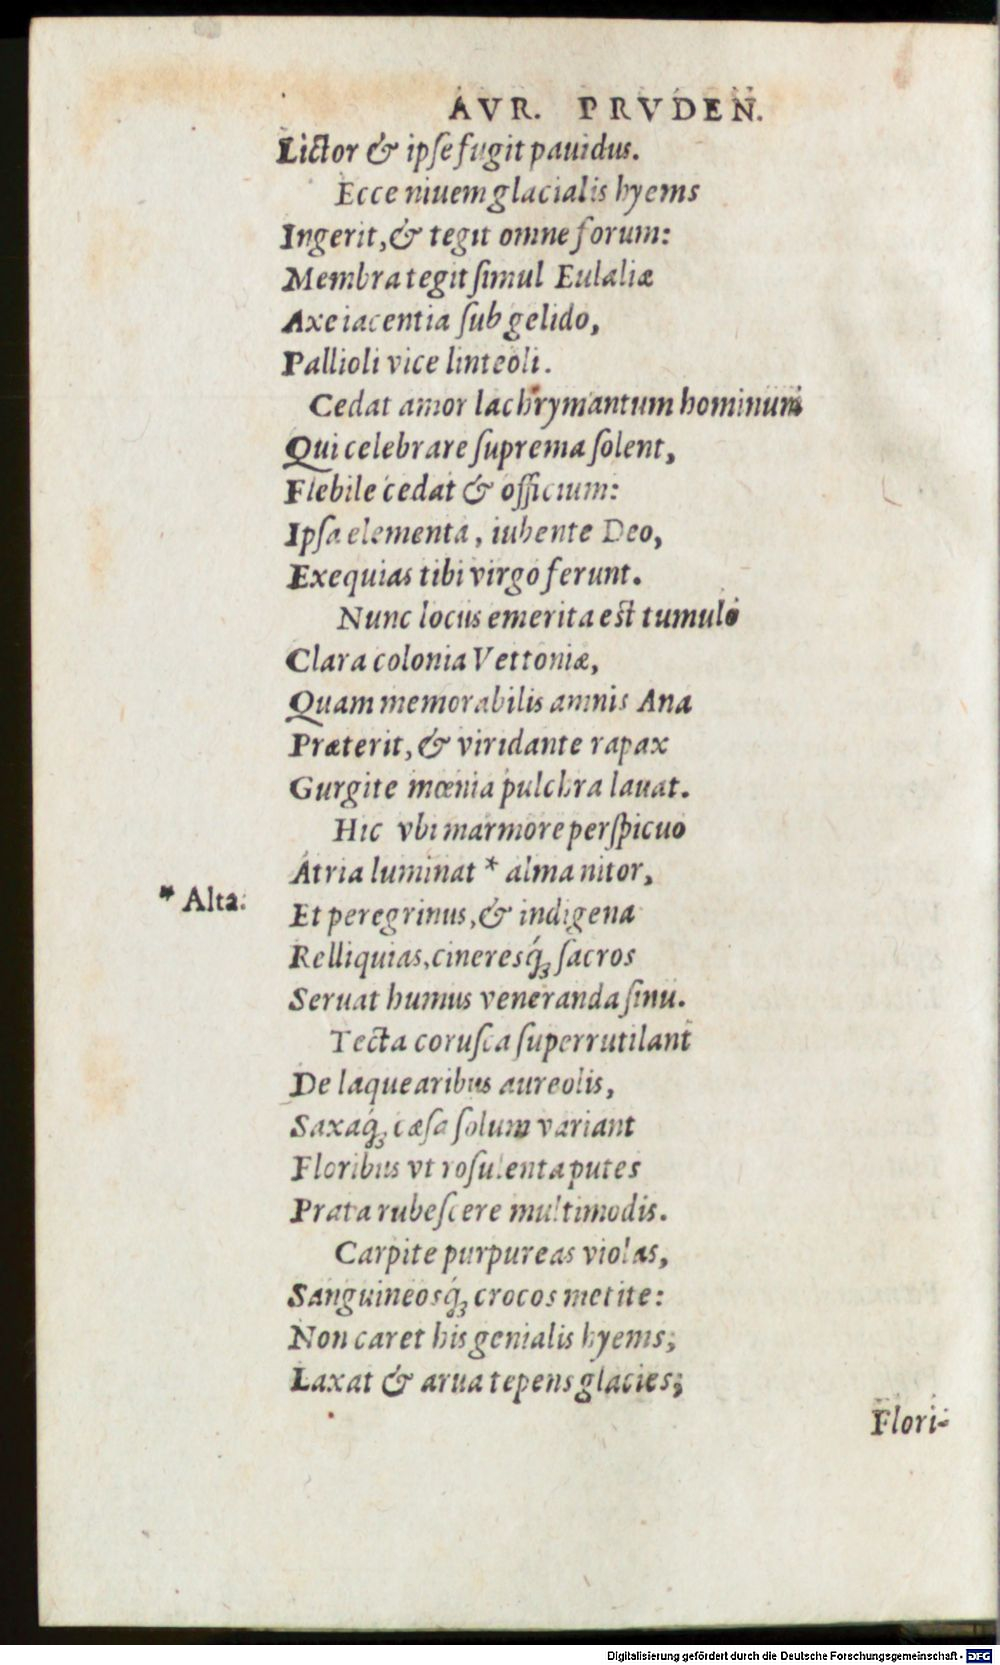 AVR. PRVDEN.
Lictor & ipse fugit pauidus.
Ecce niuem glacialis hyems
Ingerit, & tegit omne forum:
Membra tegit simul Eulaliæ
Axe iacentia sub gelido,
Pallioli vice linteoli.
Cedat amor lachrymantum hominum
Qui celebrare suprema solent,
Flebile cedat & officium:
Ipsa elementa, iubente Deo,
Exequias tibi virgo ferunt.
Nunc locus emerita est tumulo
Clara colonia Vettoniæ,
Quam memorabilis amnis Ana
Præterit, & viridante rapax
Gurgite mœnia pulchra lauat.
Hic vbi marmore perspicuo
Atria luminat * alma nitor,
* Alta.
Et peregrinus, & indigena
Relliquias, cineresq́; sacros
Seruat humus veneranda sinu.
Tecta corusca super rutilant
De laquearibus aureolis,
Saxaq́; cæsa solum variant
Floribus vt rosulenta putes
Prata rubescere multimodis.
Carpite purpureas violas,
Sanguineosq́; crocos metite:
Non caret his genialis hyems;
Laxat & arua tepens glacies;
Flori-
Digitalisierung gefördert durch die Deutsche Forschungsgemeinschaft - DFG